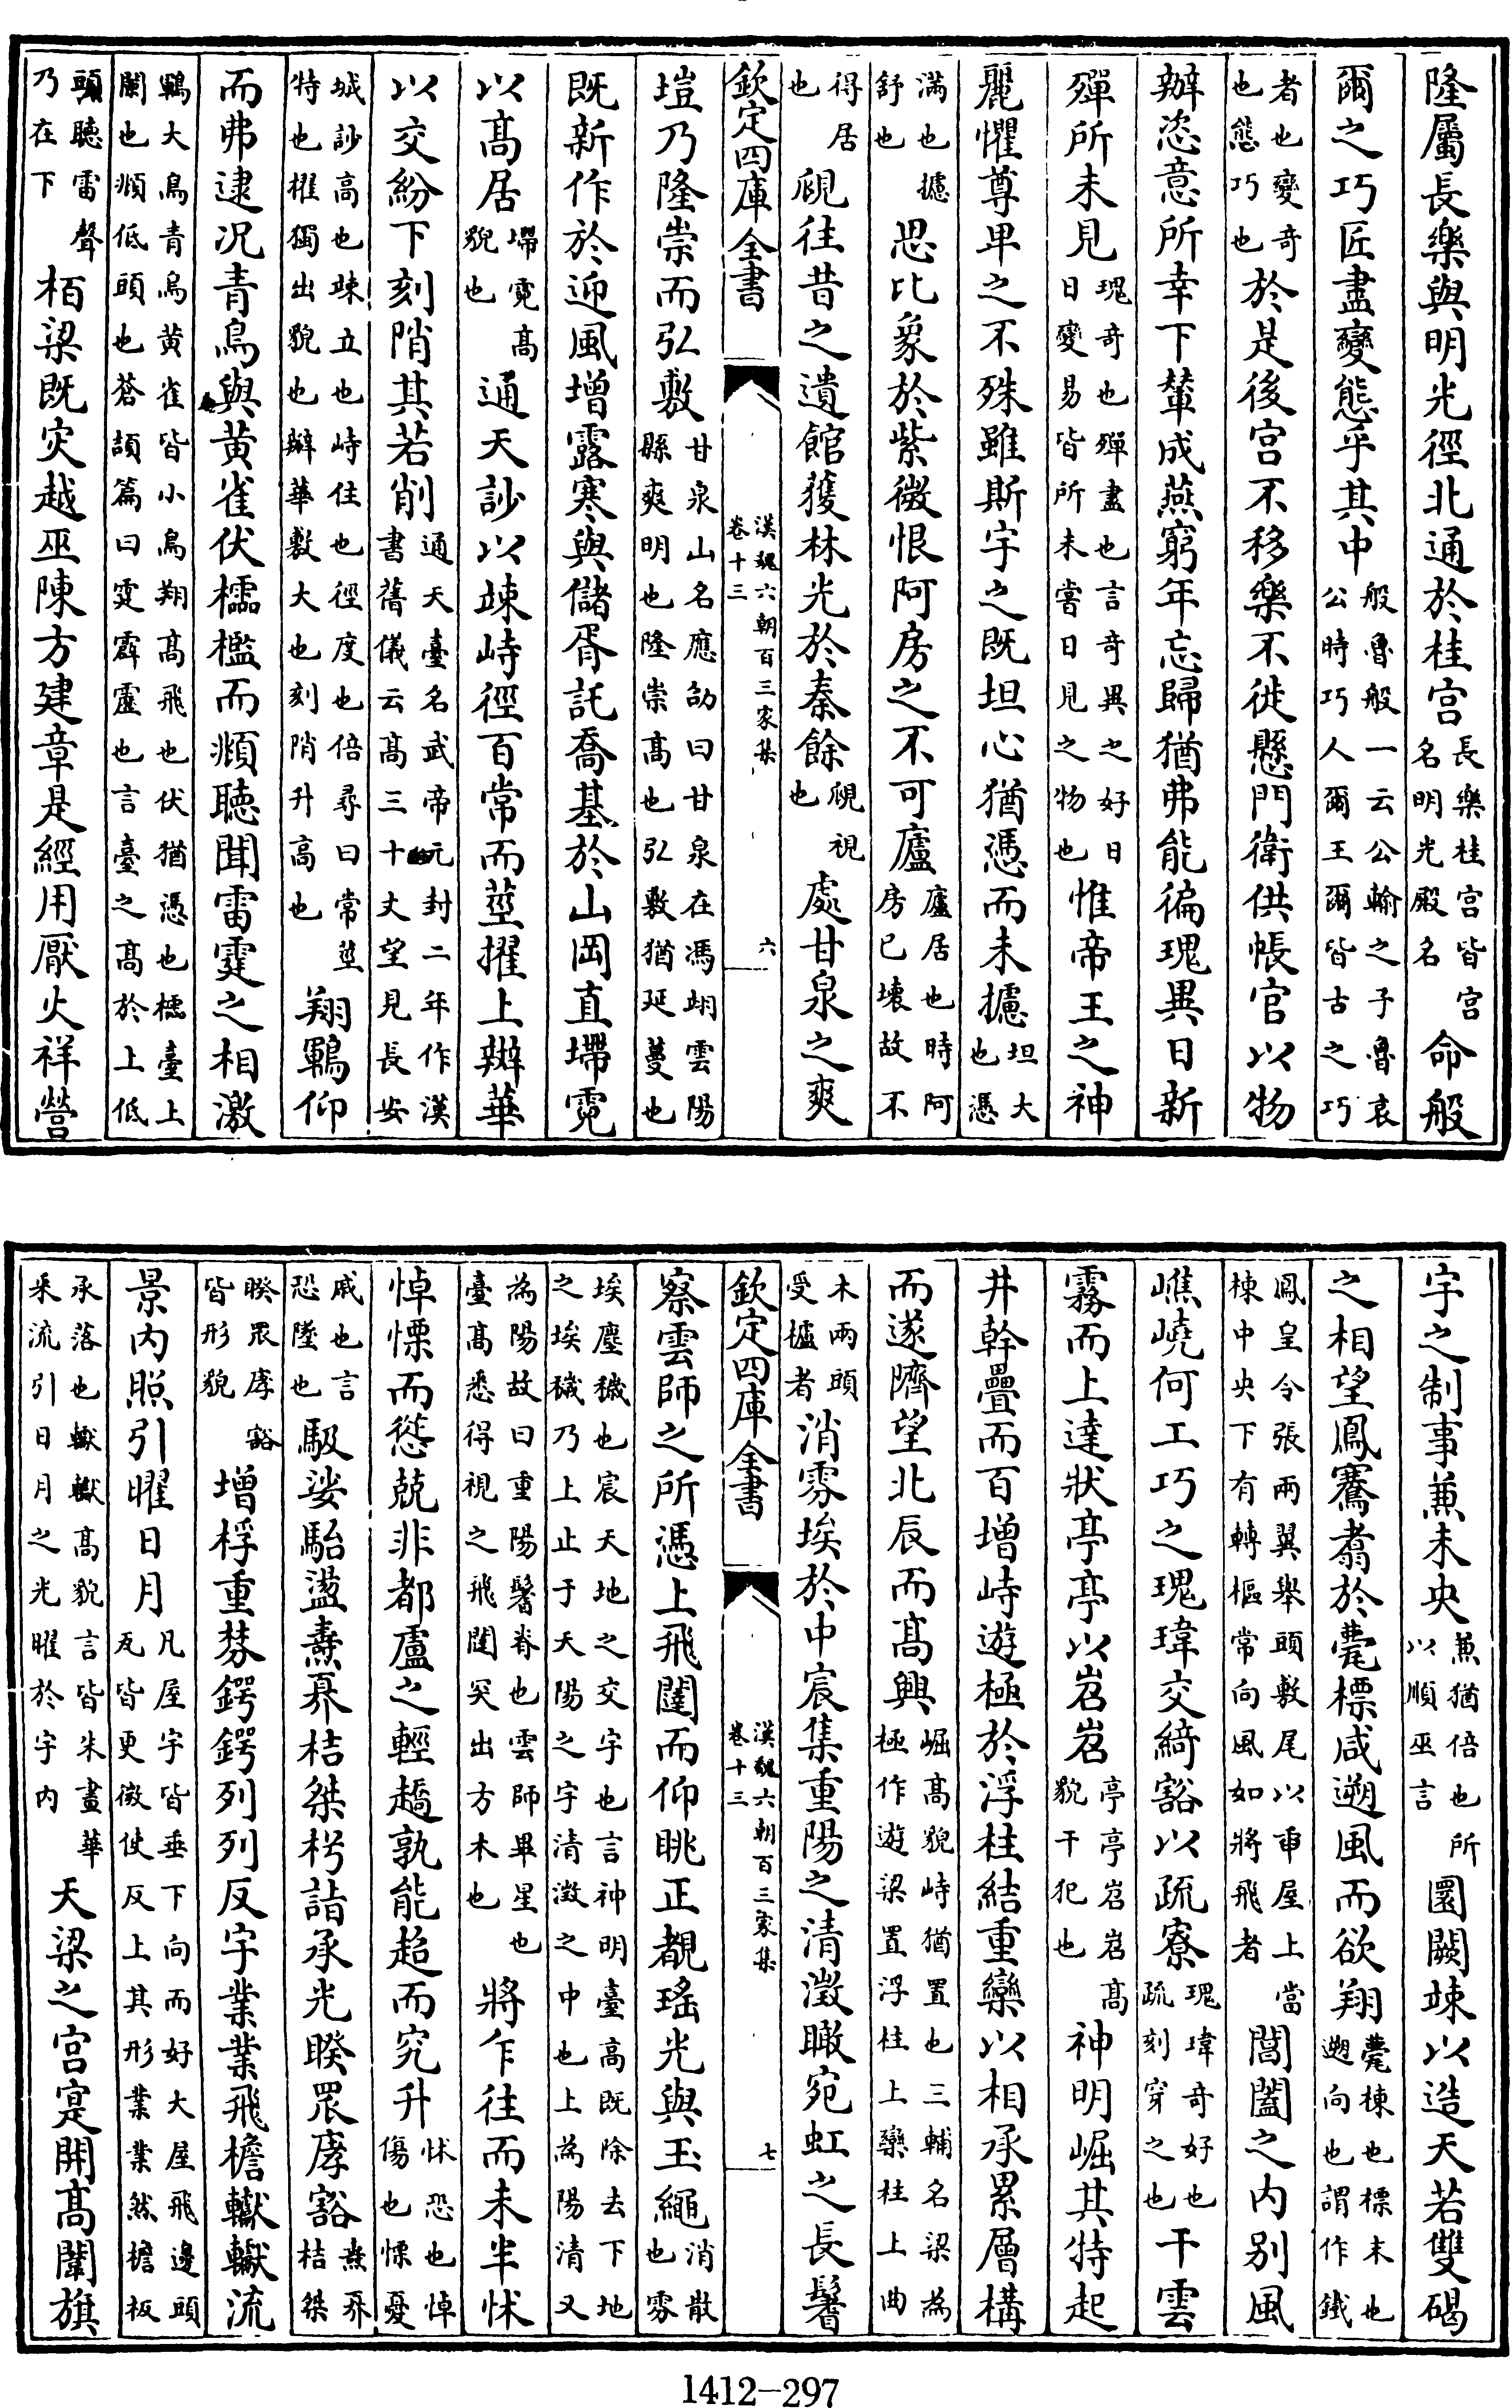 隆屬長樂與明光徑北通於桂宫長樂桂宫皆宫名明光殿名命般
爾之巧匠盡變態乎其中般魯般一云公輸之子魯哀公時巧人爾王爾皆古之巧
者也變奇也態巧也於是後宫不移樂不徙懸門衛供帳官以物
辦恣意所幸下輦成燕窮年忘歸猶弗能徧瑰異日新
殫所未見瑰奇也殫盡也言奇異之好日日變易皆所未嘗日見之物也惟帝王之神
麗懼尊卑之不殊雖斯宇之既坦心猶憑而未攄坦大也憑
滿也攄舒也思比象於紫微恨阿房之不可廬廬居也時阿房已壊故不
得居也覛往昔之遺館獲林光於秦餘覛視也處甘泉之爽
欽定四庫全書 漢魏六朝百三家集 卷十三 六
塏乃隆崇而弘敷甘泉山名應劭曰甘泉在馮翊雲陽縣爽明也隆崇高也弘敷猶延蔓也
既新作於迎風增露寒與儲胥託喬基於山岡直墆霓
以高居墆霓高貌也通天訬以竦峙徑百常而莖擢上辬華
以交紛下刻陗其若削通天臺名武帝元封二年作漢書舊儀云高三十丈望見長安
城訬高也竦立也峙住也徑度也倍尋曰常莖特也擢獨出貌也辬華敷大也刻陗升高也翔鶤仰
而弗逮况青鳥與黄雀伏櫺檻而頫聴聞雷霆之相激
鶤大鳥青鳥黄雀皆小鳥翔高飛也伏猶憑也櫺臺上闌也頫低頭也蒼頡篇曰霆霹靂也言臺之高於上低
頭聴雷聲乃在下栢梁既灾越巫陳方建章是經用厭火祥營
宇之制事兼未央兼猶倍也以順巫言所圜闕竦以造天若雙碣
之相望鳳騫翥於甍標咸遡風而欲翔甍棟也標末也遡向也謂作鐵
鳳皇令張兩翼舉頭敷尾以甫屋上當棟中央下有轉樞常向風如將飛者閶闔之内别風
嶕嶢何工巧之瑰瑋交綺豁以疏寮瑰瑋奇好也疏刻穿之也干雲
霧而上達狀亭亭以岧岧亭亭岧岧高貌干犯也神明崛其特起
井幹疊而百增峙遊極於浮柱結重欒以相承累層構
而遂隮望北辰而高興崛高貌峙猶置也三輔名梁為極作遊梁置浮柱上欒柱上曲
木兩頭受櫨者消雰埃於中宸集重陽之清澂瞰宛虹之長鬐
欽定四庫全書 漢魏六朝百三家集 卷十三 七
察雲師之所憑上飛闥而仰眺正覩瑤光與玉繩消散也雰
埃塵穢也宸天地之交宇也言神明臺高既除去下地之埃穢乃上止于天陽之宇清澂之中也上為陽清又
為陽故曰重陽鬐脊也雲師畢星也臺高悉得視之飛闥突出方木也將乍往而未半怵
悼慄而慫兢非都盧之輕趫孰能超而究升怵恐也悼傷也慄憂
戚也言恐墜也馺娑駘盪燾奡桔桀枍詣承光睽罛庨豁燾奡桔桀
睽罛庨豁皆形貌增桴重棼鍔鍔列列反宇業業飛檐轍轍流
景内照引曜日月凡屋宇皆垂下向而好大屋飛邊頭瓦皆更微使反上其形業業然檐板
承落也轍轍高貌言皆朱畫華采流引日月之光曜於宇内天梁之宫寔開高闈旗
1412-297